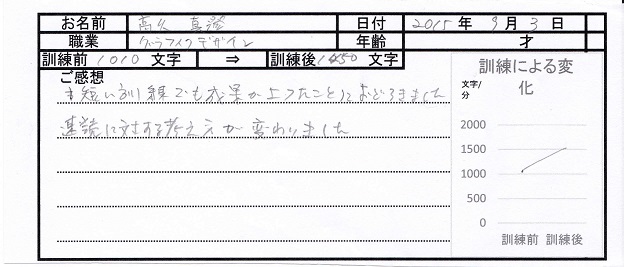 お名前 高久 真澄 日付 2015年 9月 3日
職業 グラフィクデザイン 年齢 才
訓練前 1010 文字 ⇒ 訓練後 1450 文字
ご感想
短い訓練でも成果が上ったことにおどろきました
速読に対する考え方が変わりました
訓練による変化
文字/分
2000
1500
1000
500
0
訓練前 訓練後